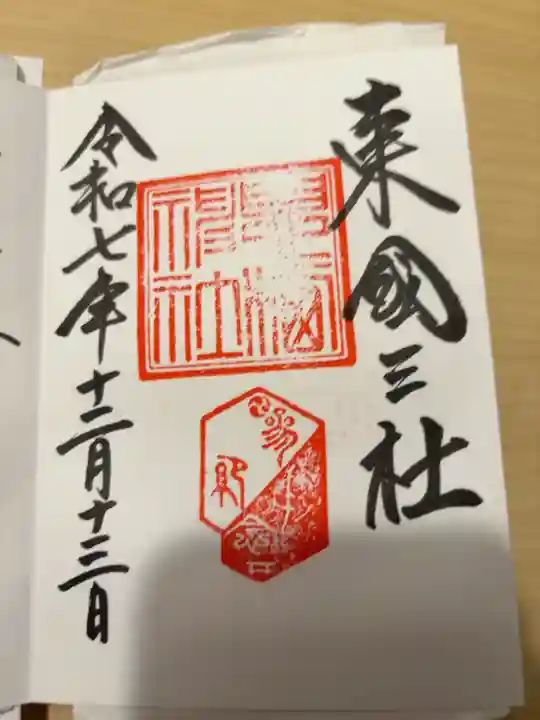 東國三社
神社
令和七年十二月十三日